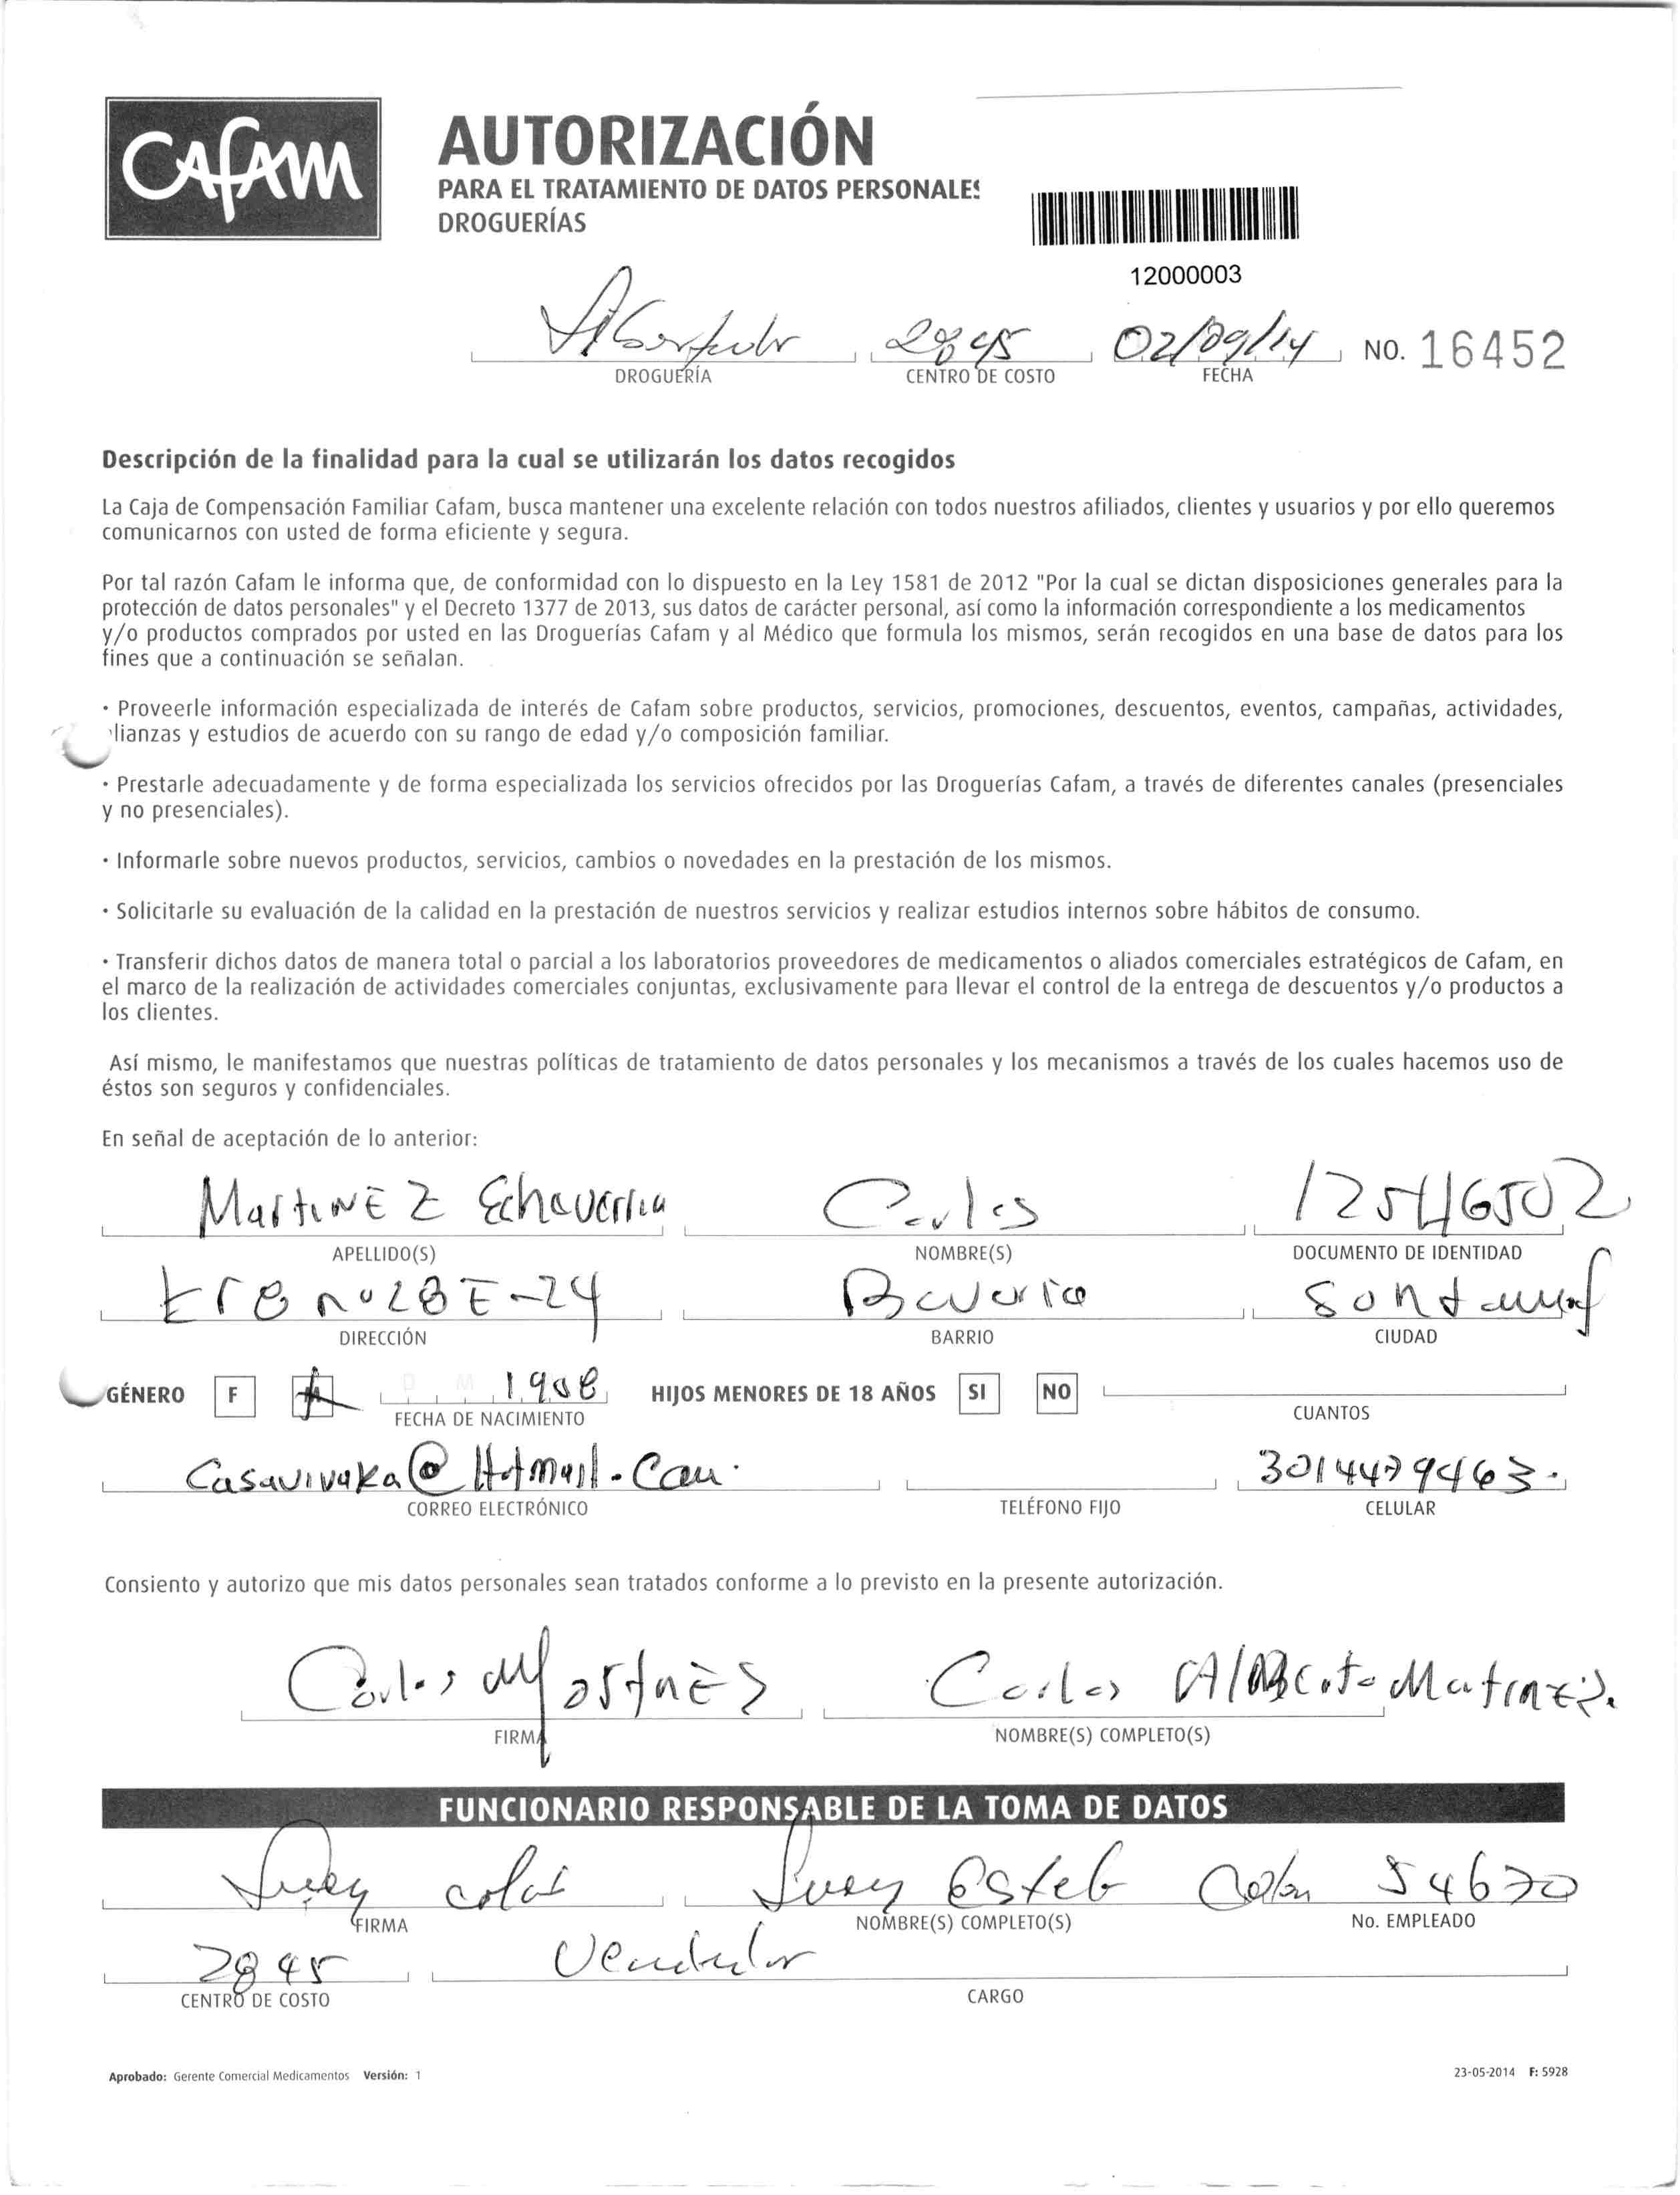 CAFAM
AUTORIZACIÓN
PARA EL TRATAMIENTO DE DATOS PERSONALES
DROGUERÍAS
12000003
2845 02/09/14 NO. 16452
DROGUERÍA CENTRO DE COSTO FECHA
Descripción de la finalidad para la cual se utilizarán los datos recogidos
La Caja de Compensación Familiar Cafam, busca mantener una excelente relación con todos nuestros afiliados, clientes y usuarios y por ello queremos
comunicarnos con usted de forma eficiente y segura.
Por tal razón Cafam le informa que, de conformidad con lo dispuesto en la Ley 1581 de 2012 "Por la cual se dictan disposiciones generales para la
protección de datos personales" y el Decreto 1377 de 2013, sus datos de carácter personal, así como la información correspondiente a los medicamentos
y/o productos comprados por usted en las Droguerías Cafam y al Médico que formula los mismos, serán recogidos en una base de datos para los
fines que a continuación se señalan.
· Proveerle información especializada de interés de Cafam sobre productos, servicios, promociones, descuentos, eventos, campañas, actividades,
lianzas y estudios de acuerdo con su rango de edad y/o composición familiar.
· Prestarle adecuadamente y de forma especializada los servicios ofrecidos por las Droguerías Cafam, a través de diferentes canales (presenciales
y no presenciales).
· Informarle sobre nuevos productos, servicios, cambios o novedades en la prestación de los mismos.
· Solicitarle su evaluación de la calidad en la prestación de nuestros servicios y realizar estudios internos sobre hábitos de consumo.
· Transferir dichos datos de manera total o parcial a los laboratorios proveedores de medicamentos o aliados comerciales estratégicos de Cafam, en
el marco de la realización de actividades comerciales conjuntas, exclusivamente para llevar el control de la entrega de descuentos y/o productos a
los clientes.
Así mismo, le manifestamos que nuestras políticas de tratamiento de datos personales y los mecanismos a través de los cuales hacemos uso de
éstos son seguros y confidenciales.
En señal de aceptación de lo anterior:
MartiNEZ Echaverria Carlos 12546502
APELLIDO(S) NOMBRE(S) DOCUMENTO DE IDENTIDAD
Bavaria
DIRECCIÓN BARRIO CIUDAD
GÉNERO F M HIJOS MENORES DE 18 AÑOS SI NO
FECHA DE NACIMIENTO CUANTOS
Casavivaka@Hotmail.Com. 3014479463.
CORREO ELECTRÓNICO TELÉFONO FIJO CELULAR
Consiento y autorizo que mis datos personales sean tratados conforme a lo previsto en la presente autorización.
Carlos Martinez Carlos Alberto Matinez.
FIRMA NOMBRE(S) COMPLETO(S)
FUNCIONARIO RESPONSABLE DE LA TOMA DE DATOS
54670
FIRMA NOMBRE(S) COMPLETO(S) No. EMPLEADO
2845 Vendedor
CENTRO DE COSTO CARGO
Aprobado: Gerente Comercial Medicamentos Versión: 1 23-05-2014 F: 5928